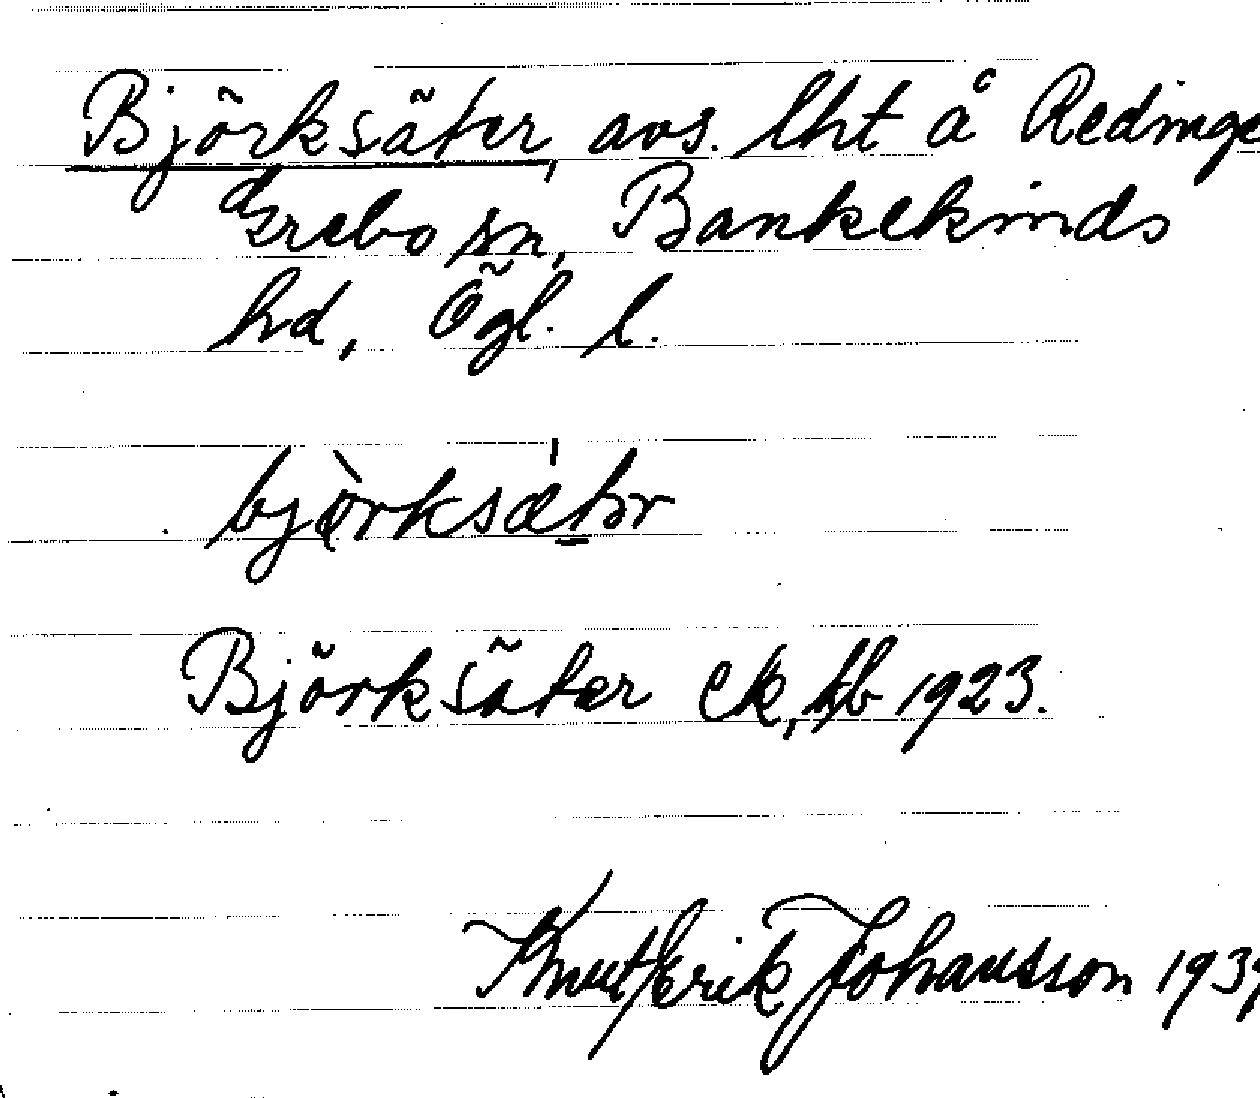 Björksäter, avs. lht å Redinge
Grebo sn, Bankekinds
hd, Ögl. l.
björksætər
Björksäter ek, hb 1923.
Knut Erik Johansson 1937